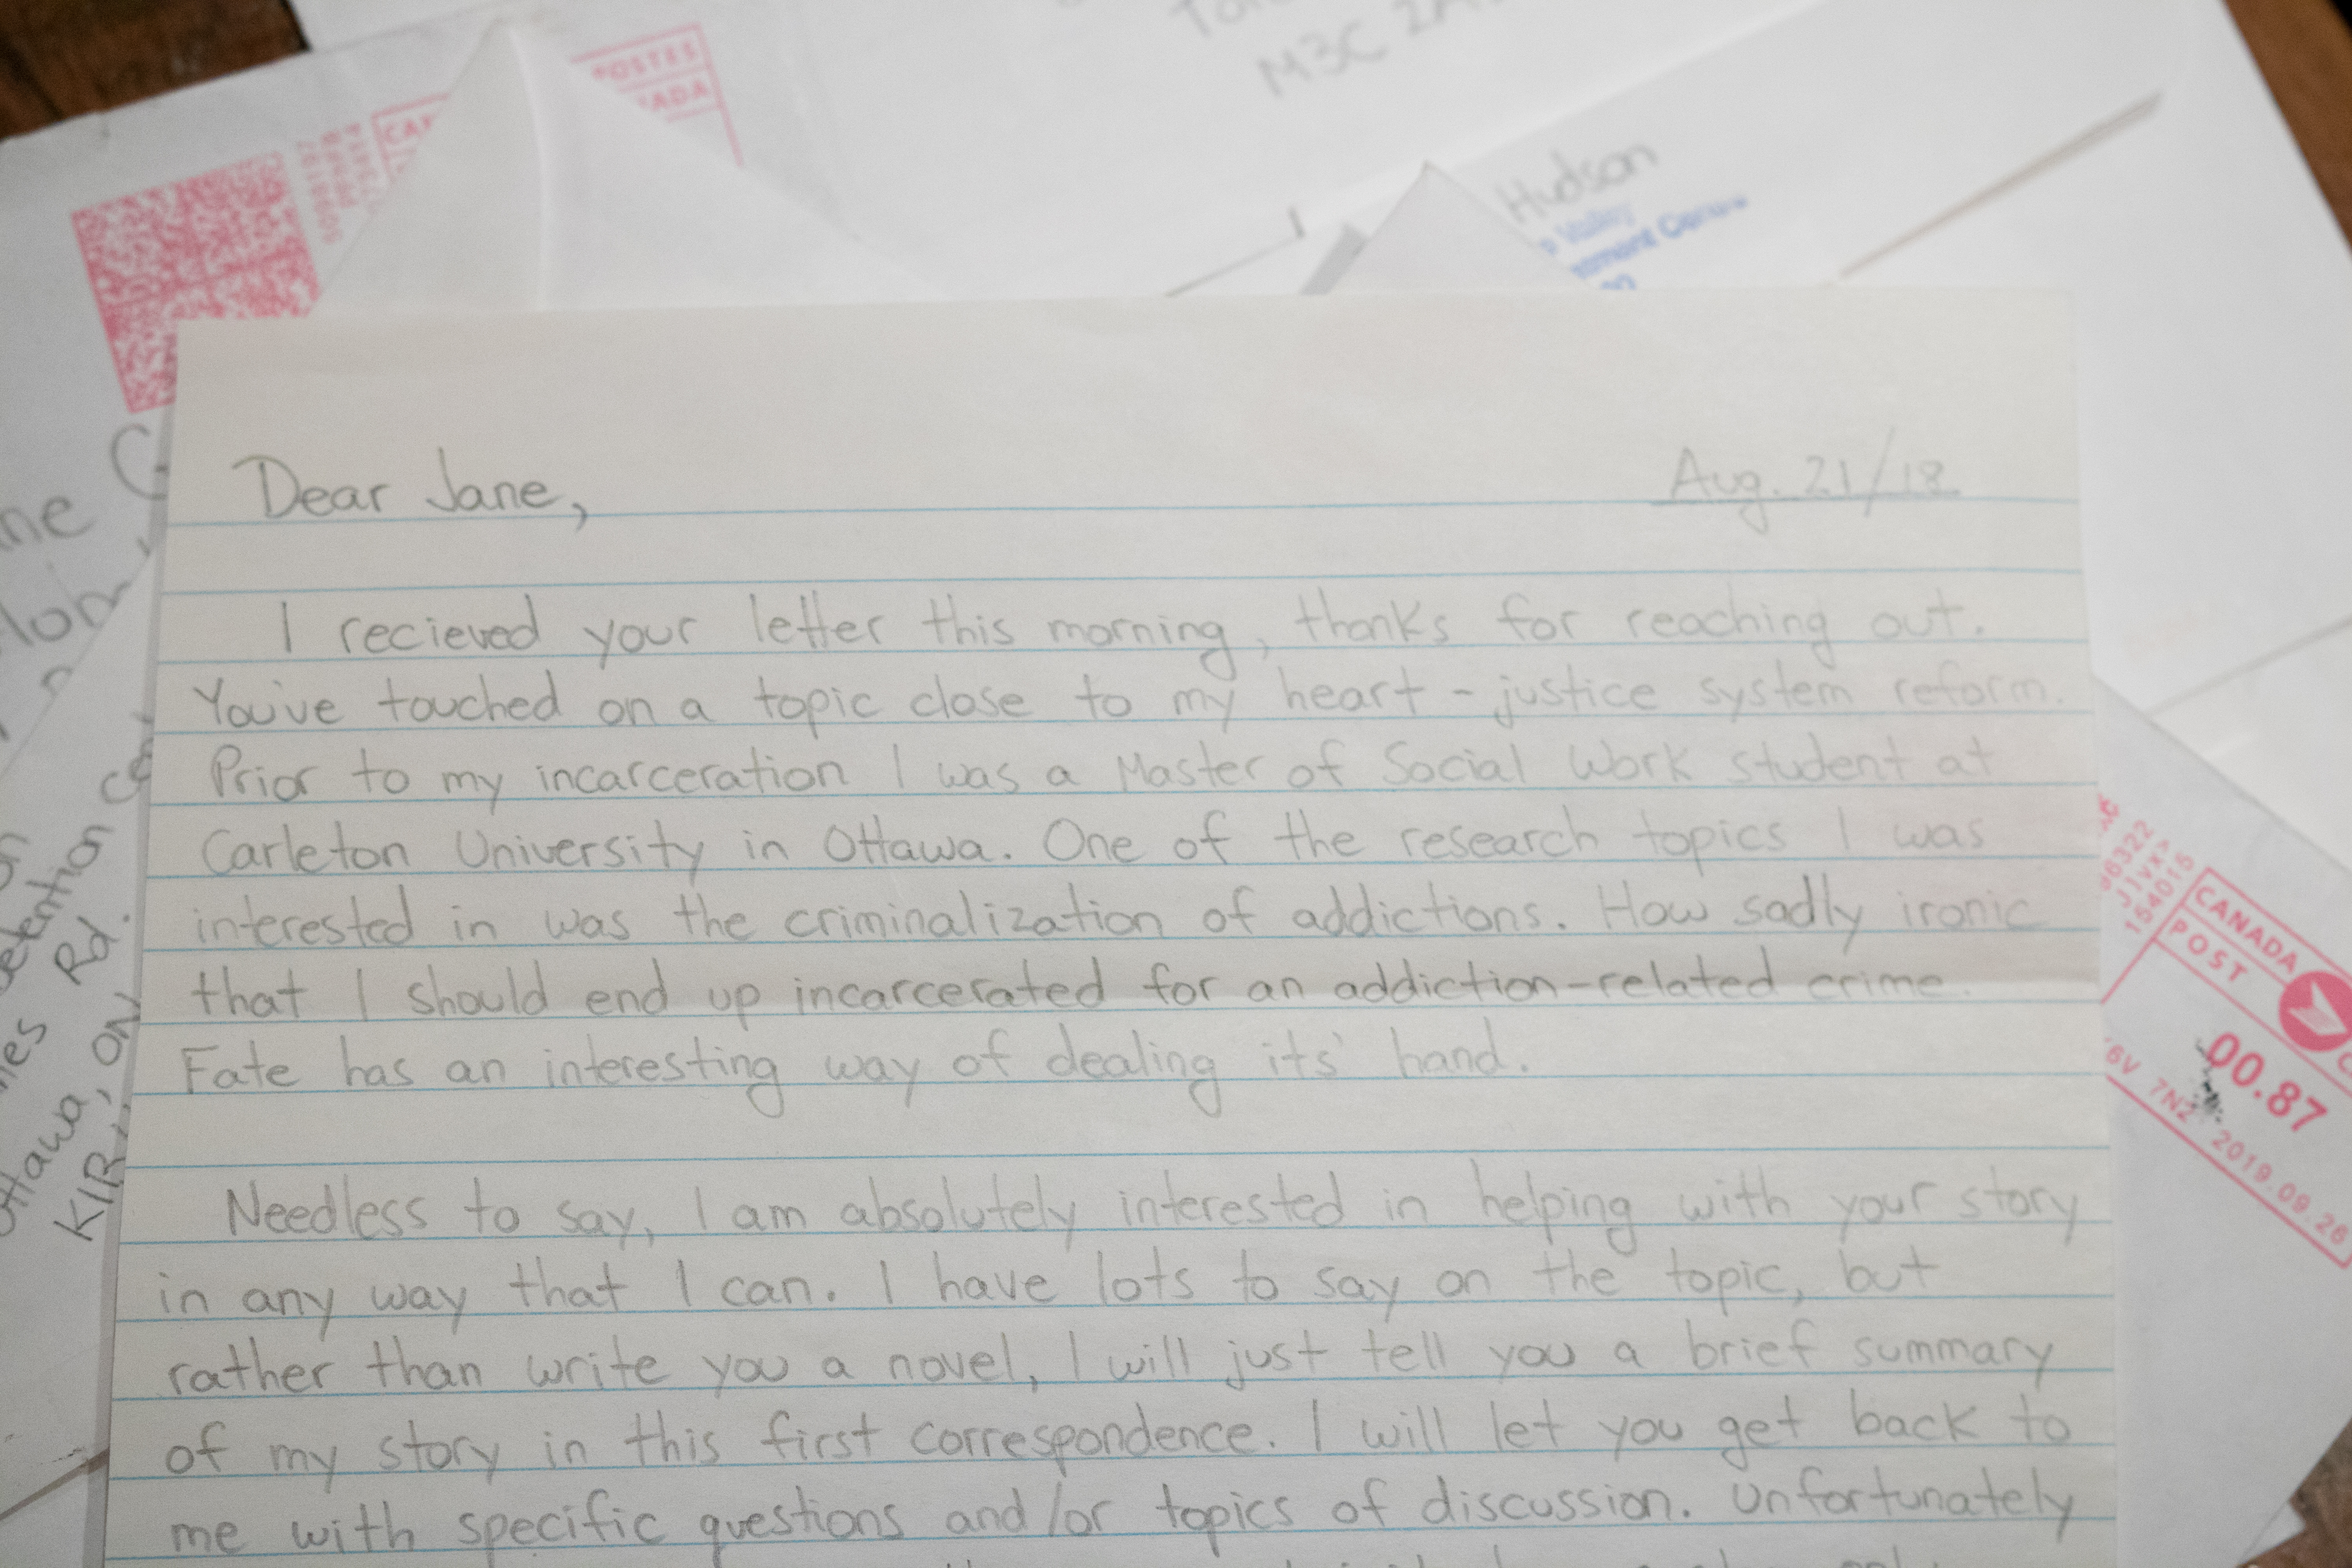 POSTES
M3C
Hudson
Dear Jane,
Aug. 21/18
I recieved your letter this morning, thanks for reaching out.
You've touched on a topic close to my heart - justice system reform.
Prior to my incarceration I was a Master of Social Work student at
Carleton University in Ottawa. One of the research topics I was
interested in was the criminalization of addictions. How sadly ironic
that I should end up incarcerated for an addiction-related crime.
Fate has an interesting way of dealing its' hand.
Needless to say, I am absolutely interested in helping with your story
in any way that I can. I have lots to say on the topic, but
rather than write you a novel, I will just tell you a brief summary
of my story in this first correspondence. I will let you get back to
me with specific questions and/or topics of discussion. Unfortunately
Rd.
ON
K1R
CANADA
POST
00.87
7N2 2019.09.26
154015